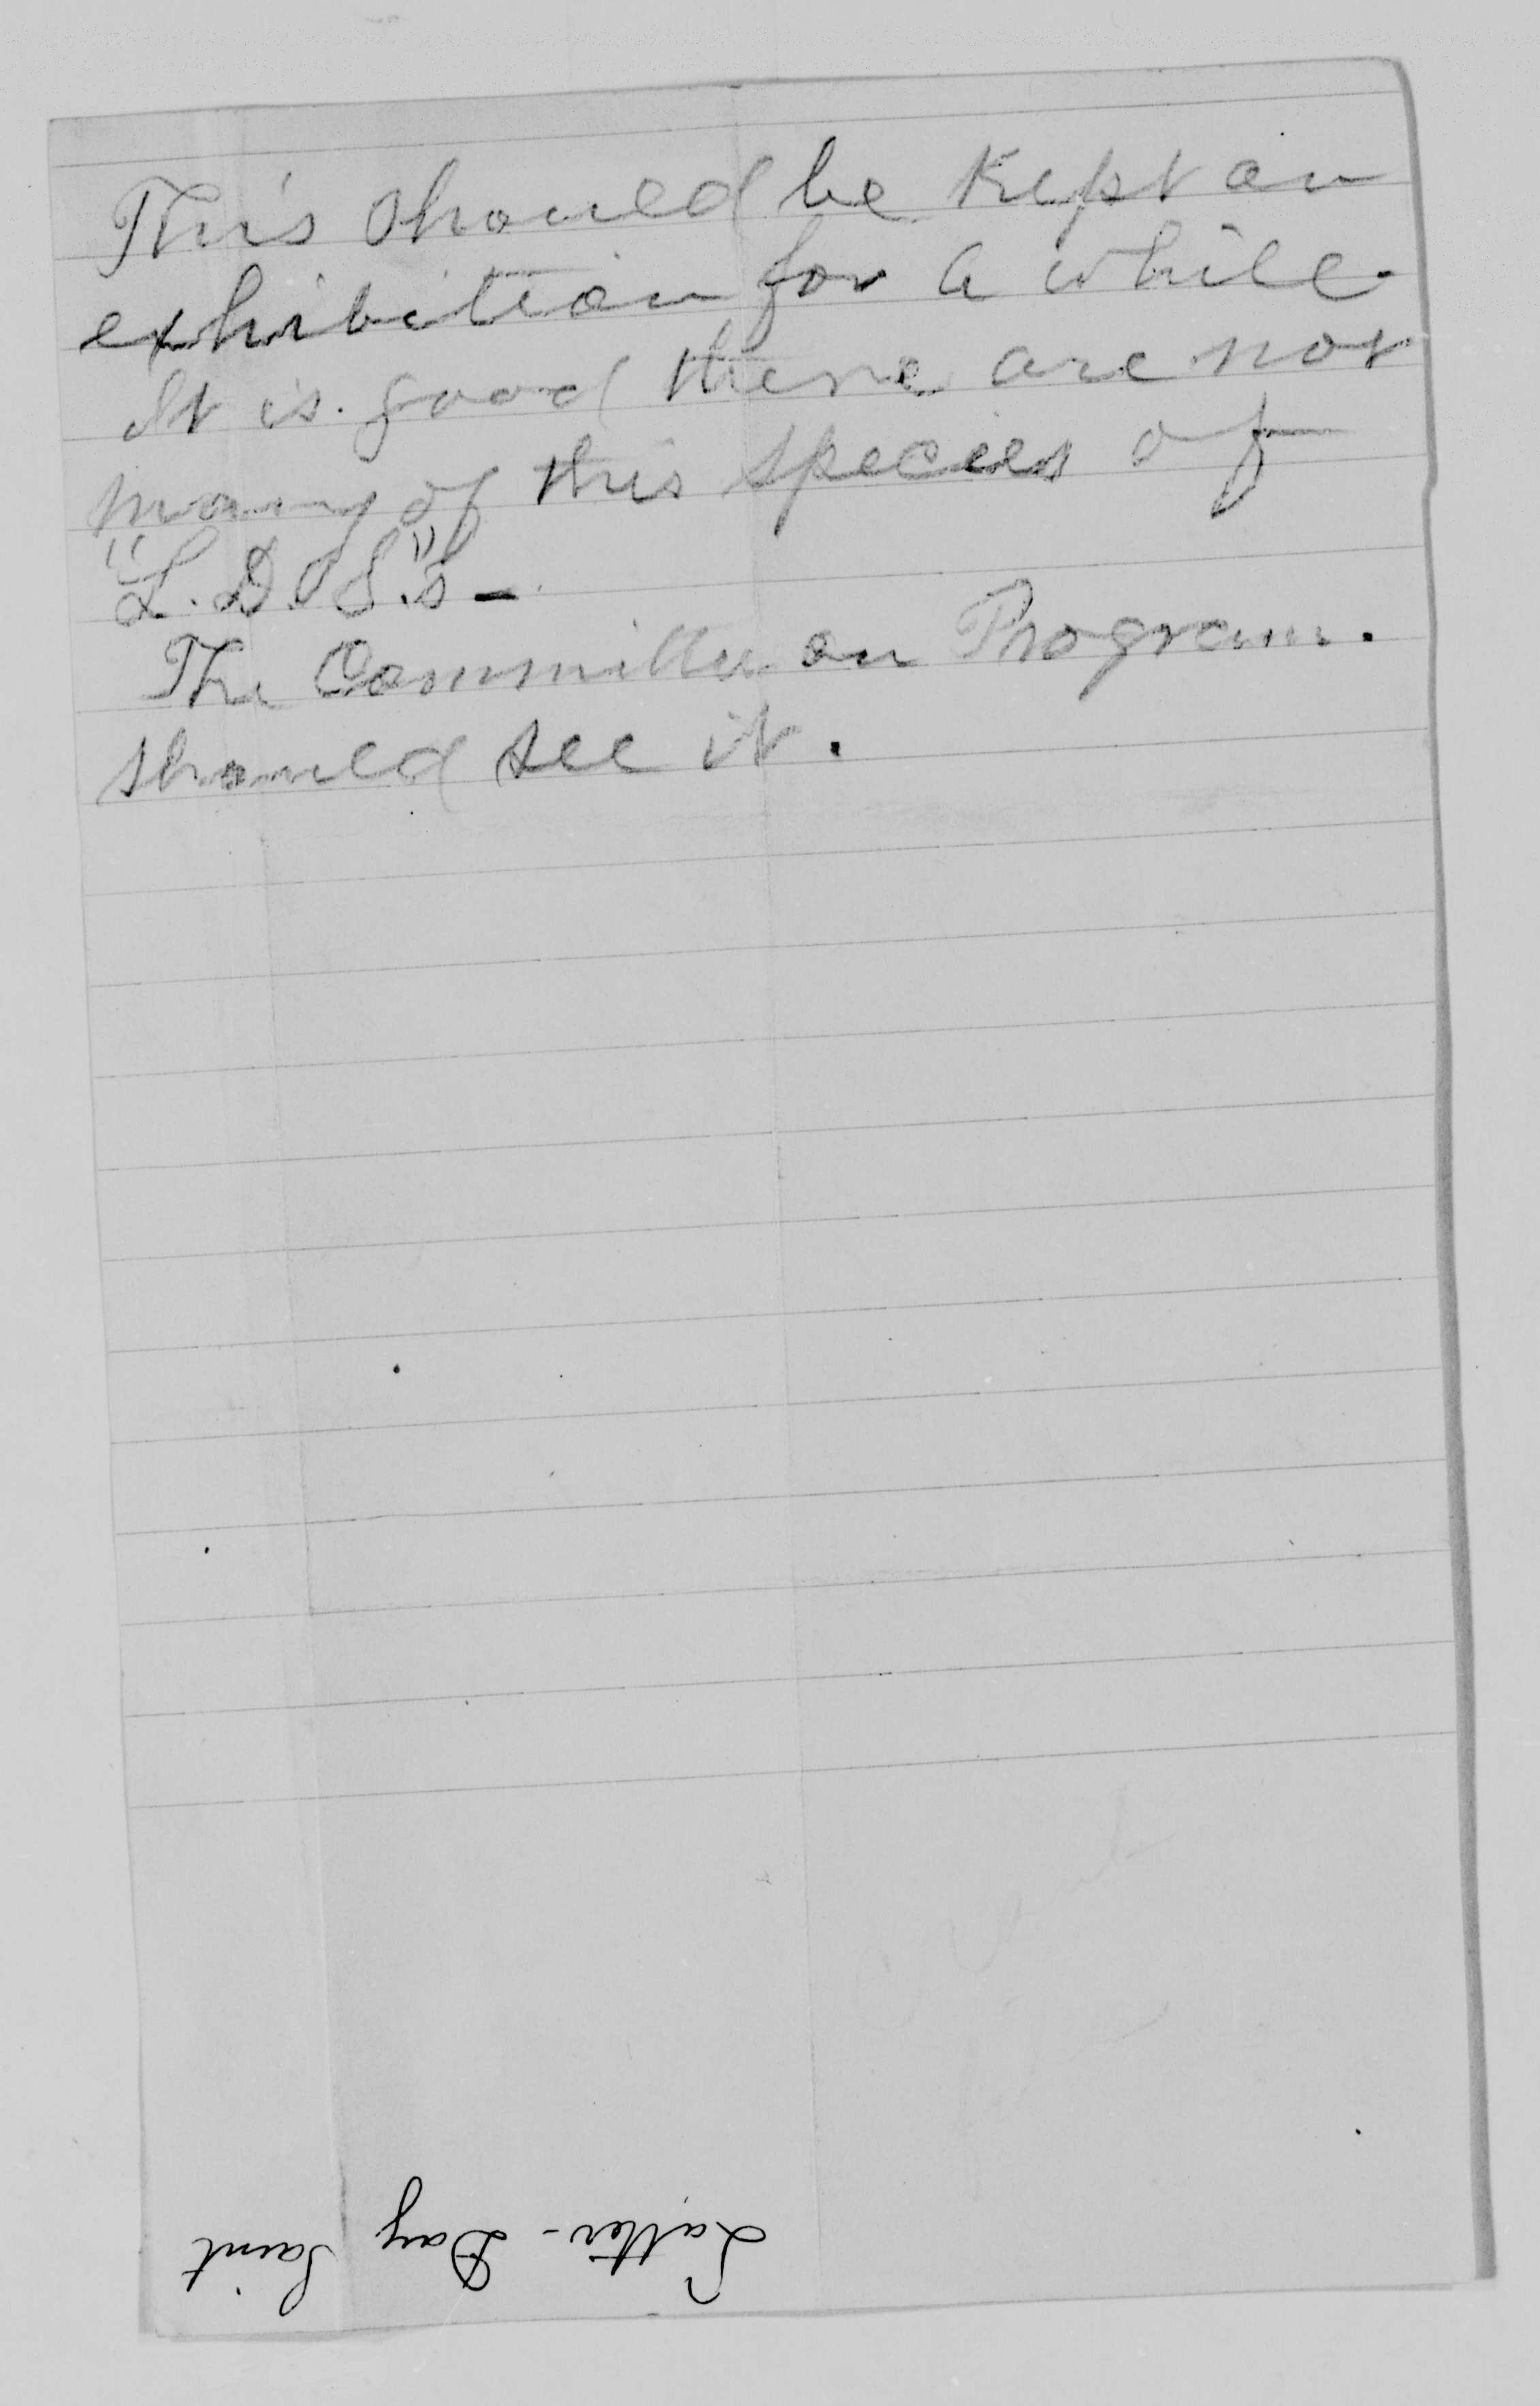 This should be kept on
exhibition for a while.
It is good there are not
many of this species of
"L.D.S."s -
The Committee on Program.
should see it.
Latter-Day Saint